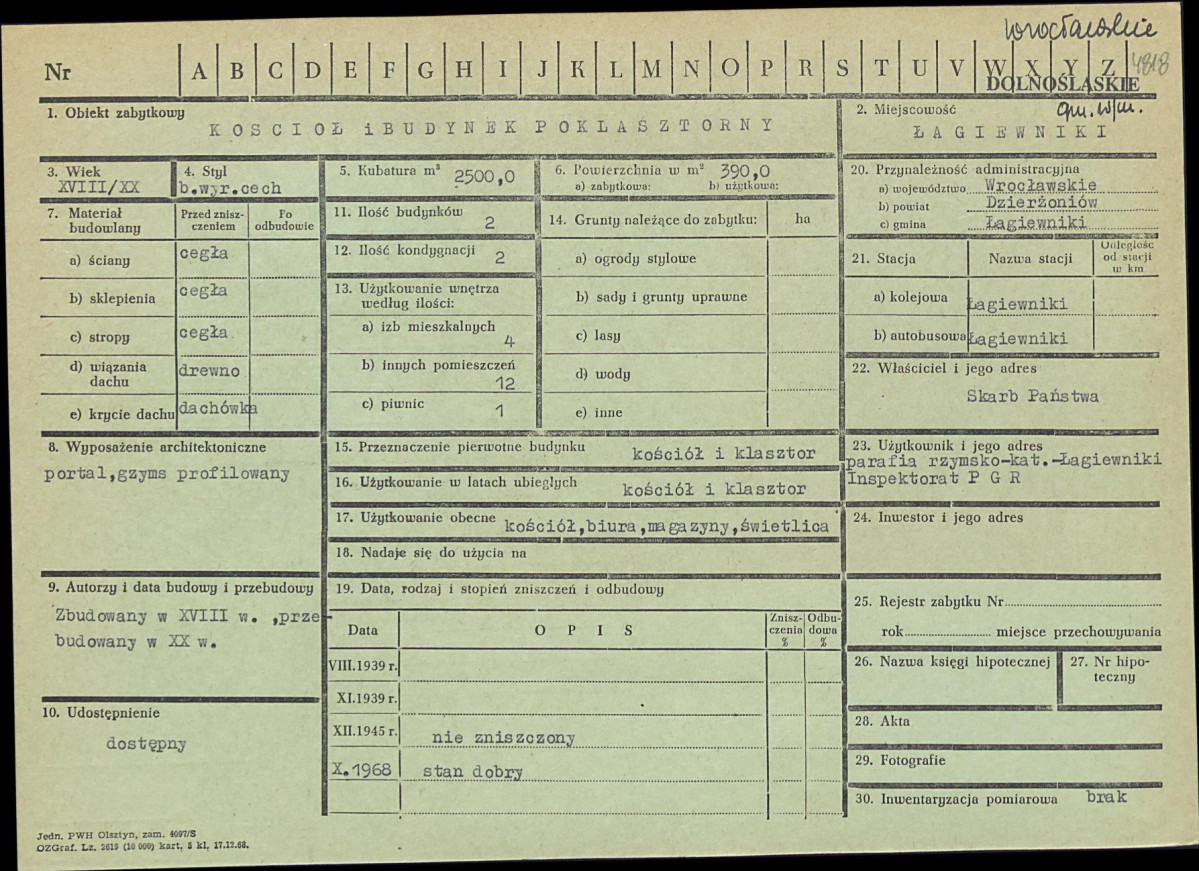 wrocławskie
Nr A B C D E F G H I J K L M N O P R S T U V W X Y Z
4818
DOLNOŚLĄSKIE
gm. w/m.
1. Obiekt zabytkowy
KOSCIOŁ iBUDYNEK POKLASZTORNY
2. Miejscowość
ŁAGIEWNIKI
3. Wiek
XVIII/XX
4. Styl
b.wyr.cech
5. Kubatura m³ 2500,0
6. Powierzchnia w m² 390,0
a) zabytkowa: b) użytkowa:
7. Materiał budowlany
Przed zniszczeniem
Po odbudowie
a) ściany cegła
b) sklepienia cegła
c) stropy cegła
d) wiązania dachu drewno
e) krycie dachu dachówka
8. Wyposażenie architektoniczne
portal,gzyms profilowany
9. Autorzy i data budowy i przebudowy
Zbudowany w XVIII w. ,prze-
budowany w XX w.
10. Udostępnienie
dostępny
11. Ilość budynków 2
12. Ilość kondygnacji 2
13. Użytkowanie wnętrza
według ilości:
a) izb mieszkalnych 4
b) innych pomieszczeń 12
c) piwnic 1
14. Grunty należące do zabytku: ha
a) ogrody stylowe
b) sady i grunty uprawne
c) lasy
d) wody
e) inne
15. Przeznaczenie pierwotne budynku kościół i klasztor
16. Użytkowanie w latach ubiegłych kościół i klasztor
17. Użytkowanie obecne kościół,biura,magazyny,świetlica
18. Nadaje się do użycia na
19. Data, rodzaj i stopień zniszczeń i odbudowy
Data OPIS Zniszczenia % Odbudowa %
VIII.1939 r.
XI.1939 r.
XII.1945 r. nie zniszczony
X.1968 stan dobry
20. Przynależność administracyjna
a) województwo Wrocławskie
b) powiat Dzierżoniów
c) gmina Łagiewniki
21. Stacja Nazwa stacji Odległość od stacji w km
a) kolejowa Łagiewniki
b) autobusowa Łagiewniki
22. Właściciel i jego adres
Skarb Państwa
23. Użytkownik i jego adres
parafia rzymsko-kat.-Łagiewniki
Inspektorat P G R
24. Inwestor i jego adres
25. Rejestr zabytku Nr
rok miejsce przechowywania
26. Nazwa księgi hipotecznej
27. Nr hipoteczny
28. Akta
29. Fotografie
30. Inwentaryzacja pomiarowa brak
Jedn. PWH Olsztyn, zam. 4097/S
OZGraf. Lz. 2619 (10 000) kart. 5 kl, 17.12.68.